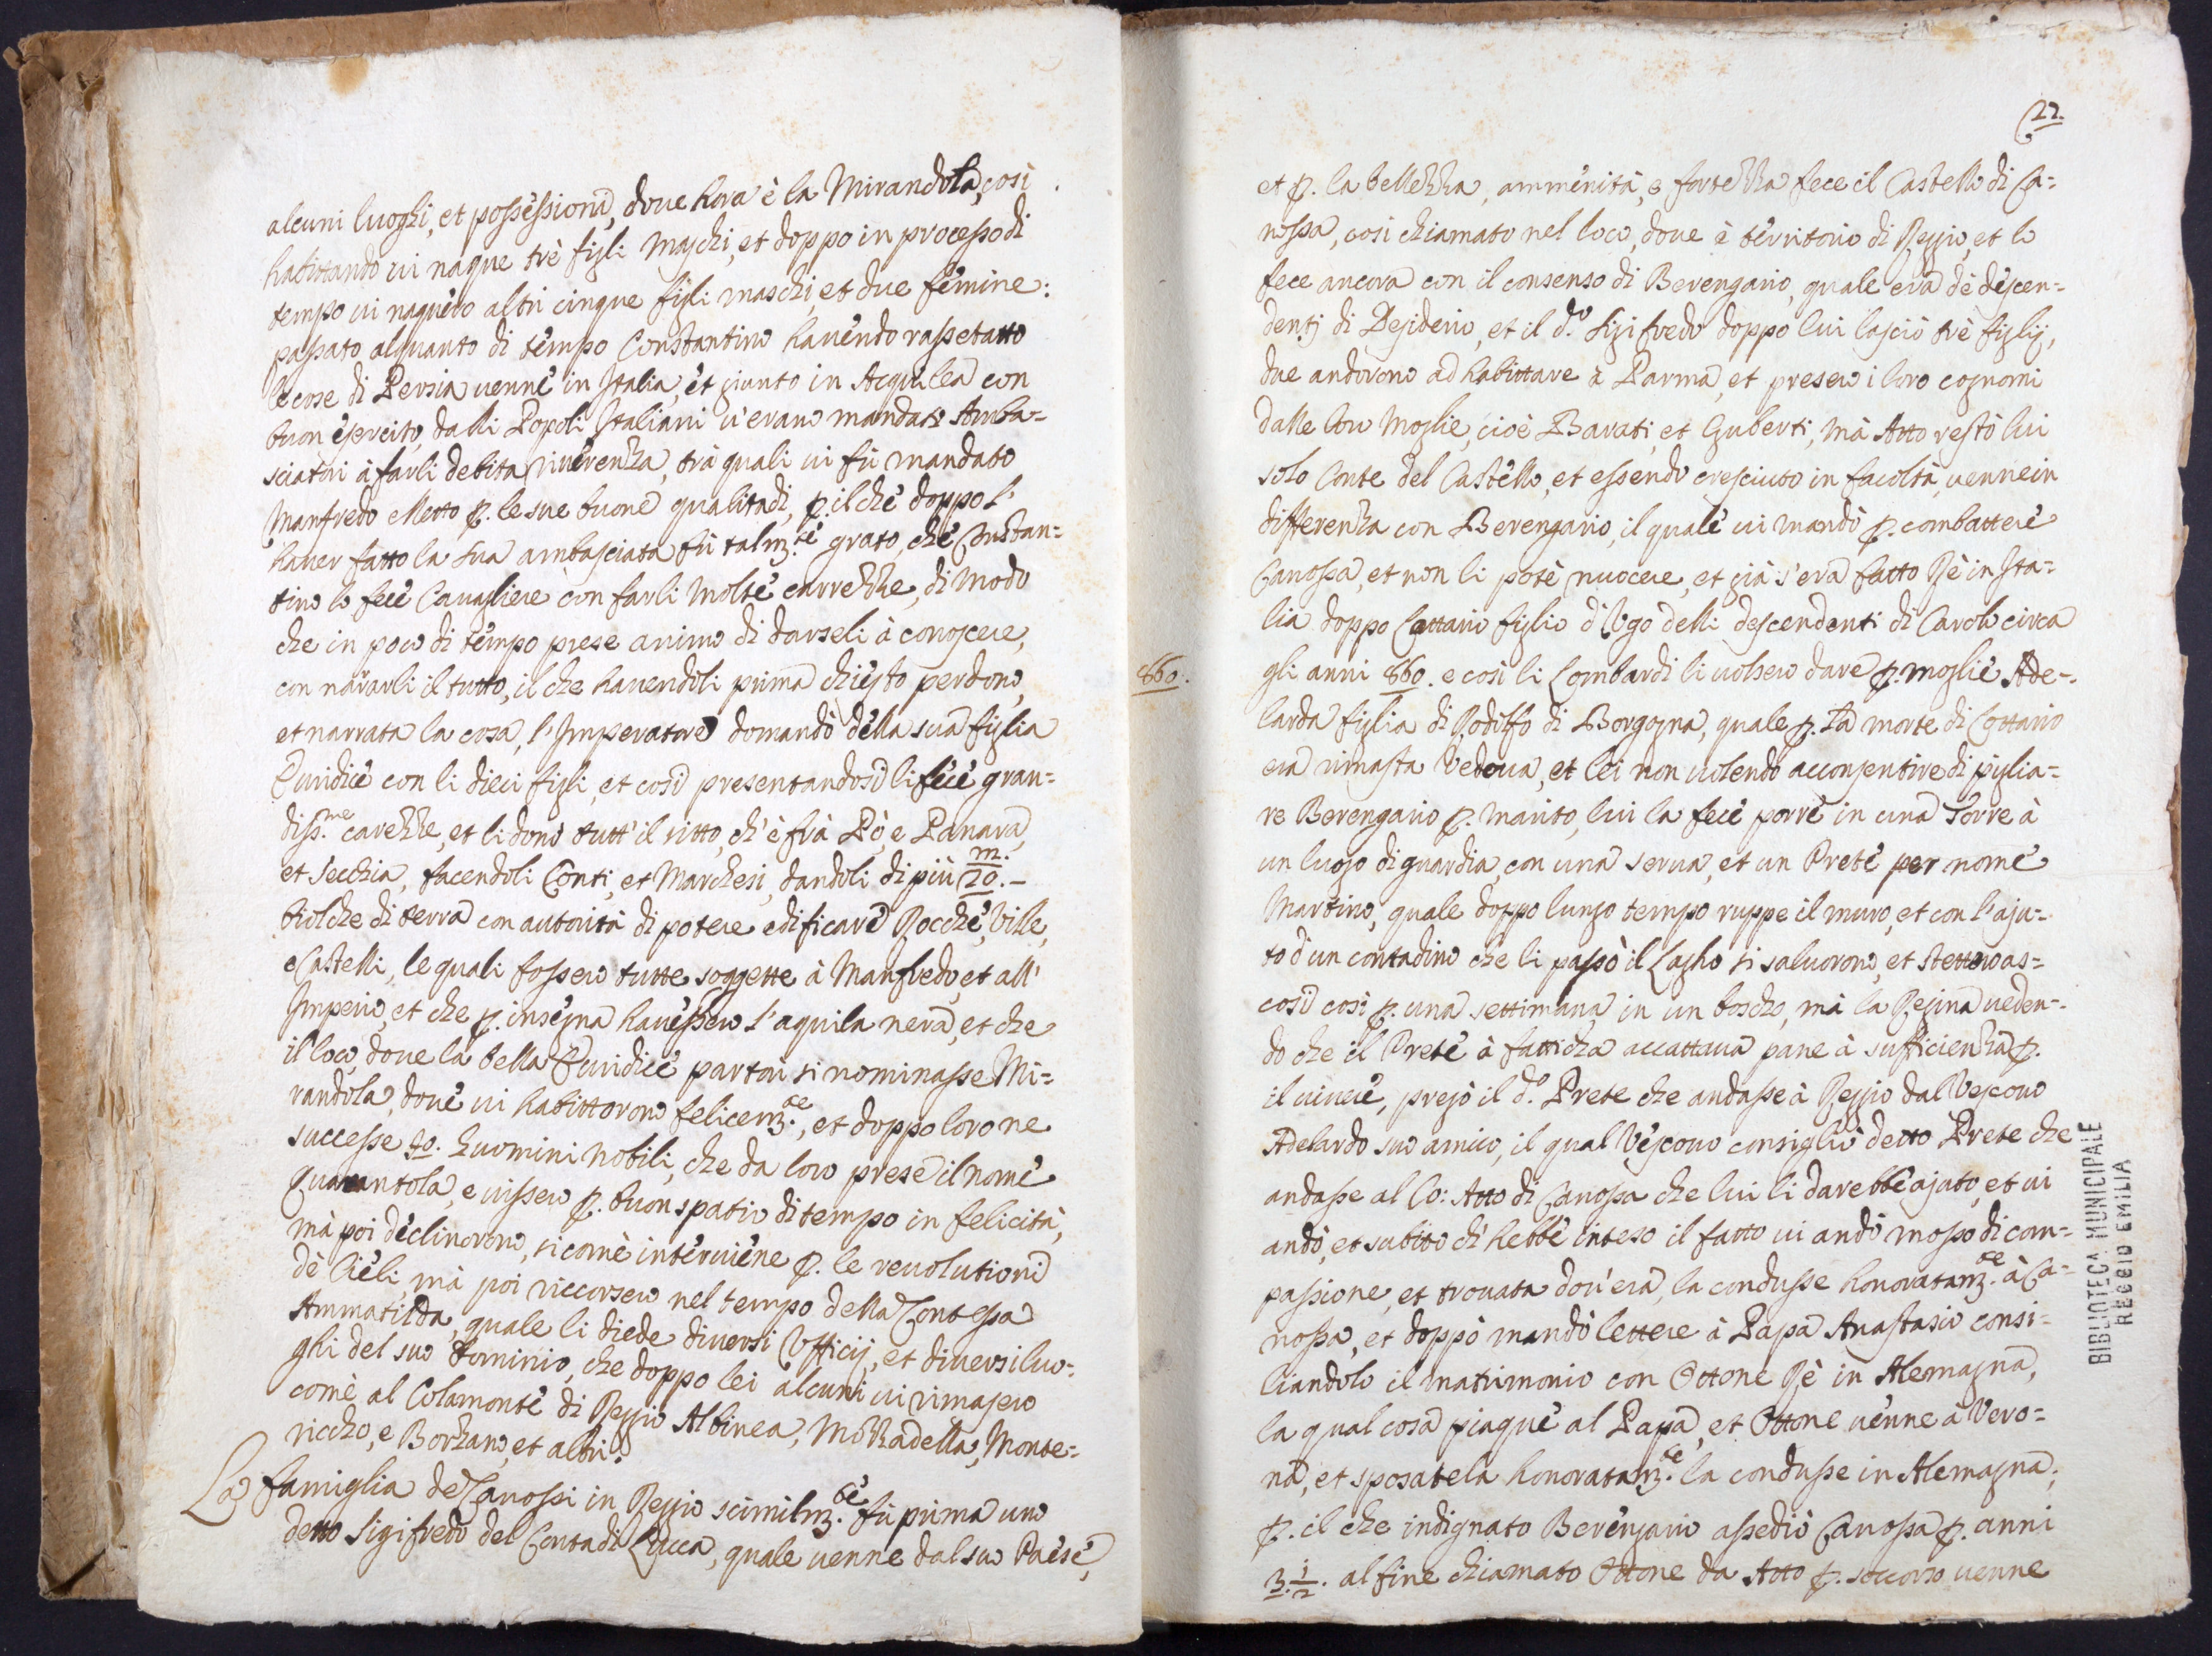 alcuni luoghi, et possessioni, doue hora è la Mirandola, così
habittando ui naque trè figli maschi, et doppo in processo di
tempo ui naquero altri cinque figli maschi, et due femine:
passato alquanto di tempo Constantino hauendo rassetatto
le cose di Persia uenne in Italia, et giunto in Acquilea con
buon esercito, dalli Popoli Italiani u'erano mandati Amba=
sciatori à farli debita riuerenza, trà quali ui fù mandato
Manfredo Metto p. le sue buone qualitadi, p. il che doppo l'
hauer fatto la sua ambasciata fù talm.te grato, che Constan=
tino lo fece Cauagliere con farli molte carrezze, di modo
che in poco di tempo prese animo di darseli à conoscere,
con nararli il tutto, il che hauendoli prima chiesto perdono,
et narrata la cosa, l'Imperatore domandò della sua figlia
Euridice con li dieci figli, et così presentandosi li fece gran=
diss.me carezze, et li donò tutt' il sitto, ch' è frà Pò, e Panara,
et Secchia, facendoli Conti, et Marchesi, dandoli di più m. 20.-
biolche di terra con autorità di potere edificare Rocche, Ville,
e Castelli, le quali fossero tutte soggette à Manfredo, et all'
Imperio, et che p. insegna hauessero l'aquila nera, et che
il loco, doue la bella Euridice partorì si nominasse Mi=
randola, doue ui habittorono felicem.te, et doppo loro ne
successe 40. huomini nobili, che da loro prese il nome
Quarantola, e uissero p. buon spatio di tempo in felicità,
mà poi declinorono, sicome interuiene p. le reuolutioni
dè Cieli, mà poi riccorsero nel tempo della Contessa
Ammatilda, quale li diede diuersi Vfficij, et diuersi luo=
ghi del suo dominio, che doppo lei alcuni ui rimasero
come al Colamonte di Reggio Albinea, Mozzadella, Monte=
riccho, e Borzano, et altri.
La famiglia de Canossi in Reggio scimilm.te fù prima uno
detto Sigifredo del Conta di Lucca, quale uenne dal suo Paese,
22.
et p. la bellezza, ammenità, e fortezza fece il Castello di Ca=
nossa, così chiamato nel loco, doue è territorio di Reggio, et lo
fece ancora con il consenso di Berengario, quale era dè descen=
denti di Desiderio, et il d.o Sigifredo doppo lui lasciò trè figlij,
due andorono ad habittare à Parma, et presero i loro cognomi
dalle loro Moglie, cioè Barati, et Guberti, mà Atto restò lui
solo Conte del Castello, et essendo cresciuto in facoltà, uenne in
differenza con Berengario, il quale ui mandò p. combattere
Canossa, et non li potè nuocere, et già s'era fatto Rè in Ita=
lia doppo Lottario figlio d'Vgo delli descendenti di Carolo circa
860.
gli anni 860. e così li Lombardi li uolsero dare p. moglie Ade=
larda figlia di Rodolfo di Borgogna, quale p. la morte di Lottario
era rimasta Vedoua, et lei non uolendo acconsentire di piglia=
re Berengario p. marito, lui la fece porre in una Torre à
un luogo di guardia, con una serua, et un Prete per nome
Martino, quale doppo lungo tempo ruppe il muro, et con l'aju=
to d'un contadino che li passò il Lagho si saluorono, et stettero as=
così così p. una settimana in un boscho, mà la Regina ueden=
do che il Prete à fatticha accattaua pane à sufficienza p.
il uiuere, pregò il d.o Prete che andasse à Reggio dal Vescouo
Adelardo suo amico, il qual Vescouo consigliò detto Prete che
andasse al Co: Atto di Canossa che lui li darebbe ajuto, et ui
andò, et subito ch' hebbe inteso il fatto ui andò mosso di com=
passione, et trouata dou'era, la condusse honoratam.te à Ca=
nossa, et doppò mandò lettere à Papa Anastasio consi=
liandolo il matrimonio con Ottone Rè in Alemagna,
la qual cosa piaque al Papa, et Ottone uenne à Vero=
na, et sposatela honoratam.te la condusse in Alemagna;
p. il che indignato Berengario assediò Canossa p. anni
3. 1/2. al fine chiamato Ottone da Atto p. soccorso uenne
BIBLIOTECA MUNICIPALE
REGGIO EMILIA